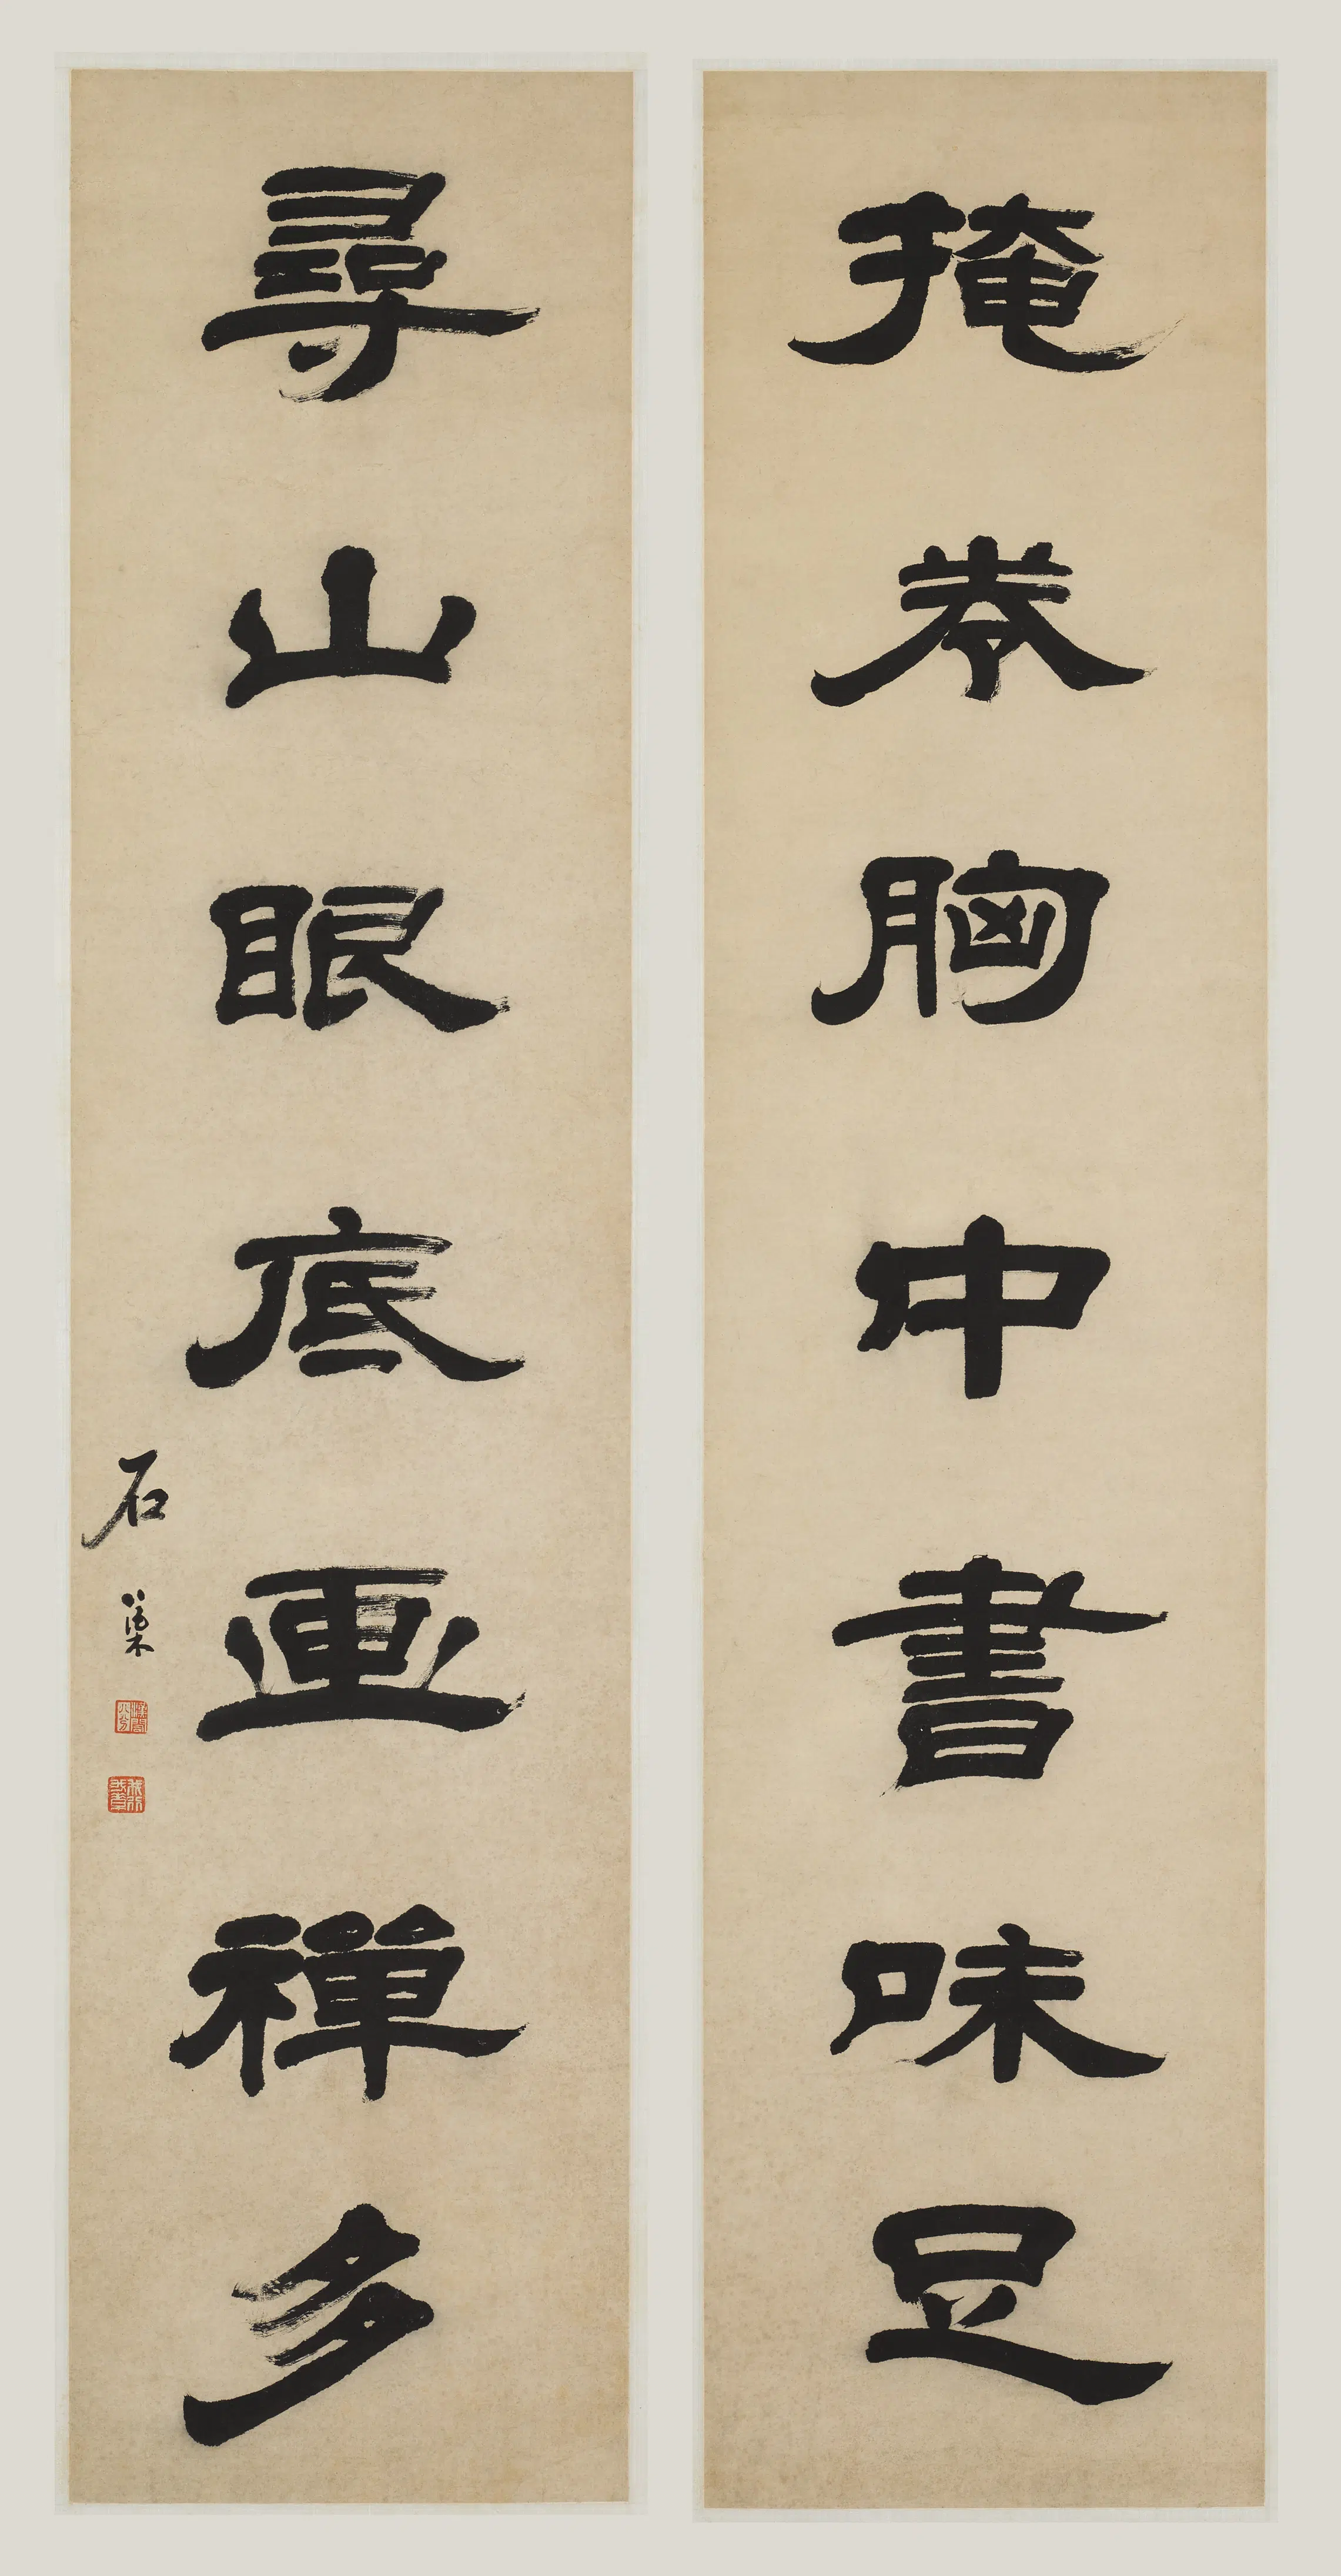 掩卷胸中書味足
尋山眼底画禪多
石渠